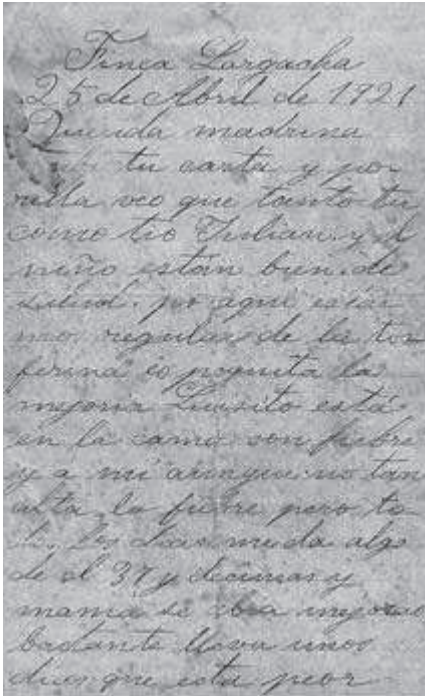 Finca Largacha
25 de Abril de 1921
Querida madrina
tu carta y por
ella veo que tanto tu
como tio Julian y el
niño están bien de
salud. por aqui esta
mos regular de la tos
ferina es poquita la
mejoria Luisito está
en la cama con fiebre
y a mi aunque no tan
alta la fiebre pero to
los dias me da algo
de el 37 y decimas y
mama se iba mejoran
bastante lleva unos
dias que esta peor